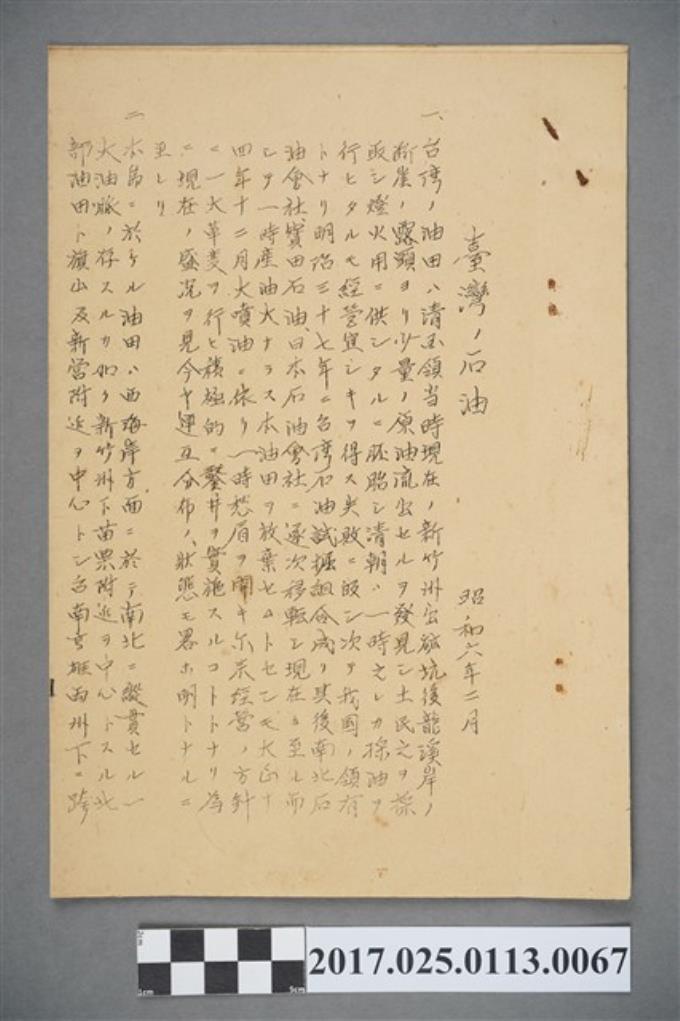 臺灣ノ石油
昭和六年二月
一、台湾ノ油田ハ清国領当時現在ノ新竹州出磺坑後龍溪岸ノ
断崖ノ露頭ヨリ少量ノ原油流出セルヲ發見シ土民之ヲ採
取シ燈火用ニ供シタルニ胚胎シ清朝ハ一時之レカ採油ヲ
行ヒタルモ經營宜シキヲ得ス失敗ニ皈シ次テ我國ノ領有
トナリ明治三十七年ニ台湾石油試掘組合成リ其後南北石
油會社、寳田石油、日本石油會社ニ逐次移転シ現在ニ至ル而
シテ一時産油大ナラス本油田ヲ放棄セムトセシモ大正十
四年十二月大噴油ニ依リ一時愁眉ヲ開キ尓来経営ノ方針
ニ一大革変ヲ行ヒ積極的ニ鑿井ヲ實施スルコトトナリ為
ニ現在ノ盛況ヲ見今ヤ連亙分布ノ狀態モ畧ホ明トナルニ
至レリ
二、本島ニ於ケル油田ハ西海岸方面ニ於テ南北ニ縱貫セル一
大油脈ノ存スルカ如ク新竹州下苗栗附近ヲ中心トスル北
部油田ト旗山及新営附近ヲ中心トシ台南高雄両州下ニ跨
2017.025.0113.0067